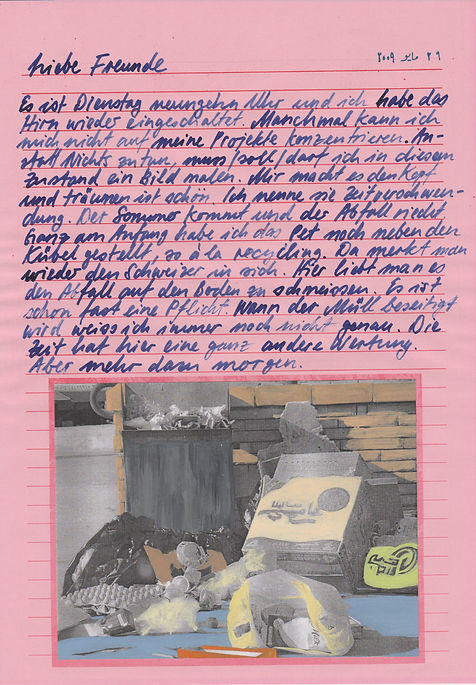 Liebe Freunde
٢٩ مايو ٢٠٠٩
Es ist Dienstag neunzehn Uhr und ich habe das
Hirn wieder eingeschaltet. Manchmal kann ich
mich nicht auf meine Projekte konzentrieren. An-
statt Nichts zu tun, muss/soll/darf ich in diesem
Zustand ein Bild malen. Mir macht es den Kopf
und träumen ist schön. Ich nenne sie Zeitverschwen-
dung. Der Sommer kommt und der Abfall riecht.
Ganz am Anfang habe ich das Pet noch neben den
Kübel gestellt, so à la recycling. Da merkt man
wieder den Schweizer in sich. Hier liebt man es
den Abfall auf den Boden zu schmeissen. Es ist
schon fast eine Pflicht. Wann der Müll beseitigt
wird weiss ich immer noch nicht genau. Die
Zeit hat hier eine ganz andere Wertung.
Aber mehr dazu morgen.